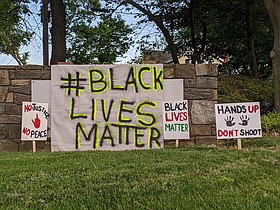 NO JUSTICE
NO PEACE
#BLACK
LIVES
MATTER
BLACK
LIVES
MATTER
HANDS UP
DON'T SHOOT